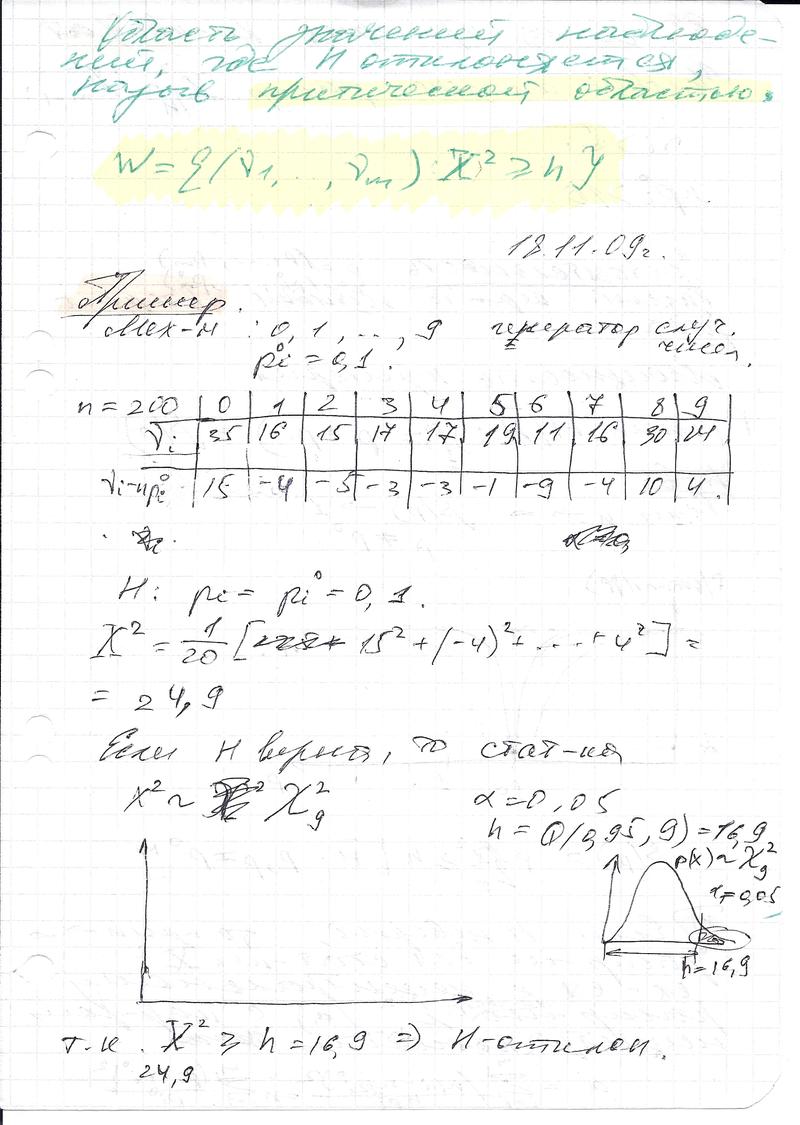 Область значений наблюде-
ний, где H отклоняется,
назыв критической областью.
W = {(ν₁, ..., νₘ) : X² ≥ h}
18.11.09г.
Пример.
Мех-м : 0, 1, ..., 9 генератор случ. чисел.
pᵢ⁰ = 0,1.
n = 200 | 0 | 1 | 2 | 3 | 4 | 5 | 6 | 7 | 8 | 9 |
νᵢ | 35 | 16 | 15 | 17 | 17 | 19 | 11 | 16 | 30 | 24 |
νᵢ-npᵢ⁰ | 15 | -4 | -5 | -3 | -3 | -1 | -9 | -4 | 10 | 4. |
H: pᵢ = pᵢ⁰ = 0,1.
X² = 1/20 [15² + (-4)² + ... + 4²] =
= 24,9
Если H верна, то стат-ка
X² ~ χ²₉
α = 0,05
h = Q(0,95, 9) = 16,9
p(x) ~ χ²₉
α = 0,05
h = 16,9
т.к. X² ≥ h = 16,9 ⇒ H-отклон.
24,9